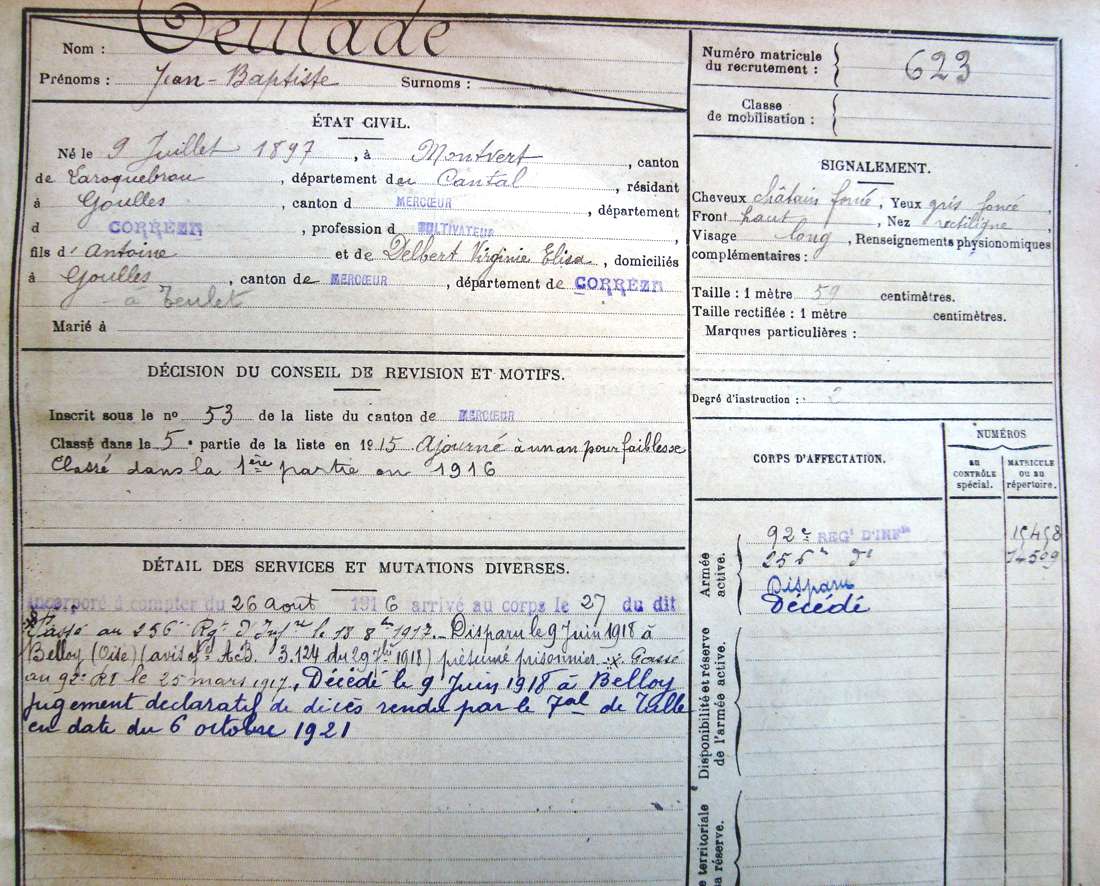 Nom : Teulade
Prénoms : Jean-Baptiste Surnoms :
ÉTAT CIVIL.
Né le 9 Juillet 1897, à Montvert, canton
de Laroquebrou, département du Cantal, résidant
à Goulles, canton d MERCŒUR, département
d CORRÈZE, profession d CULTIVATEUR,
fils d'Antoine et de Delbert Virginie Elisa, domiciliés
à Goulles, canton de MERCŒUR, département de CORRÈZE
- à Teulet
Marié à
DÉCISION DU CONSEIL DE REVISION ET MOTIFS.
Inscrit sous le no 53 de la liste du canton de MERCŒUR
Classé dans la 5e partie de la liste en 1915 Ajourné à un an pour faiblesse
Classé dans la 1ère partie en 1916
DÉTAIL DES SERVICES ET MUTATIONS DIVERSES.
Incorporé à compter du 26 aout 1916 arrivé au corps le 27 du dit
Passé au 256e Rgt d'Infrie le 18 8bre 1917. Disparu le 9 Juin 1918 à
Belloy (Oise) (avis No A.B. 3.124 du 29 1918) présumé prisonnier - x Passé
au 92e RI le 25 mars 1917. Décédé le 9 Juin 1918 à Belloy
jugement déclaratif de décès rendu par le Tal de Tulle
en date du 6 octobre 1921
Numéro matricule
du recrutement : 623
Classe
de mobilisation :
SIGNALEMENT.
Cheveux châtain foncé, Yeux gris foncé,
Front haut, Nez rectiligne,
Visage long, Renseignements physionomiques
complémentaires :
Taille : 1 mètre 59 centimètres.
Taille rectifiée : 1 mètre centimètres.
Marques particulières :
Degré d'instruction : 2
CORPS D'AFFECTATION.
NUMÉROS
au CONTRÔLE spécial.
MATRICULE ou au répertoire.
Armée active.
92e REGt D'INFie 15458
256e do
Disparu
Décédé
Disponibilité et réserve de l'armée active.
territoriale
réserve.